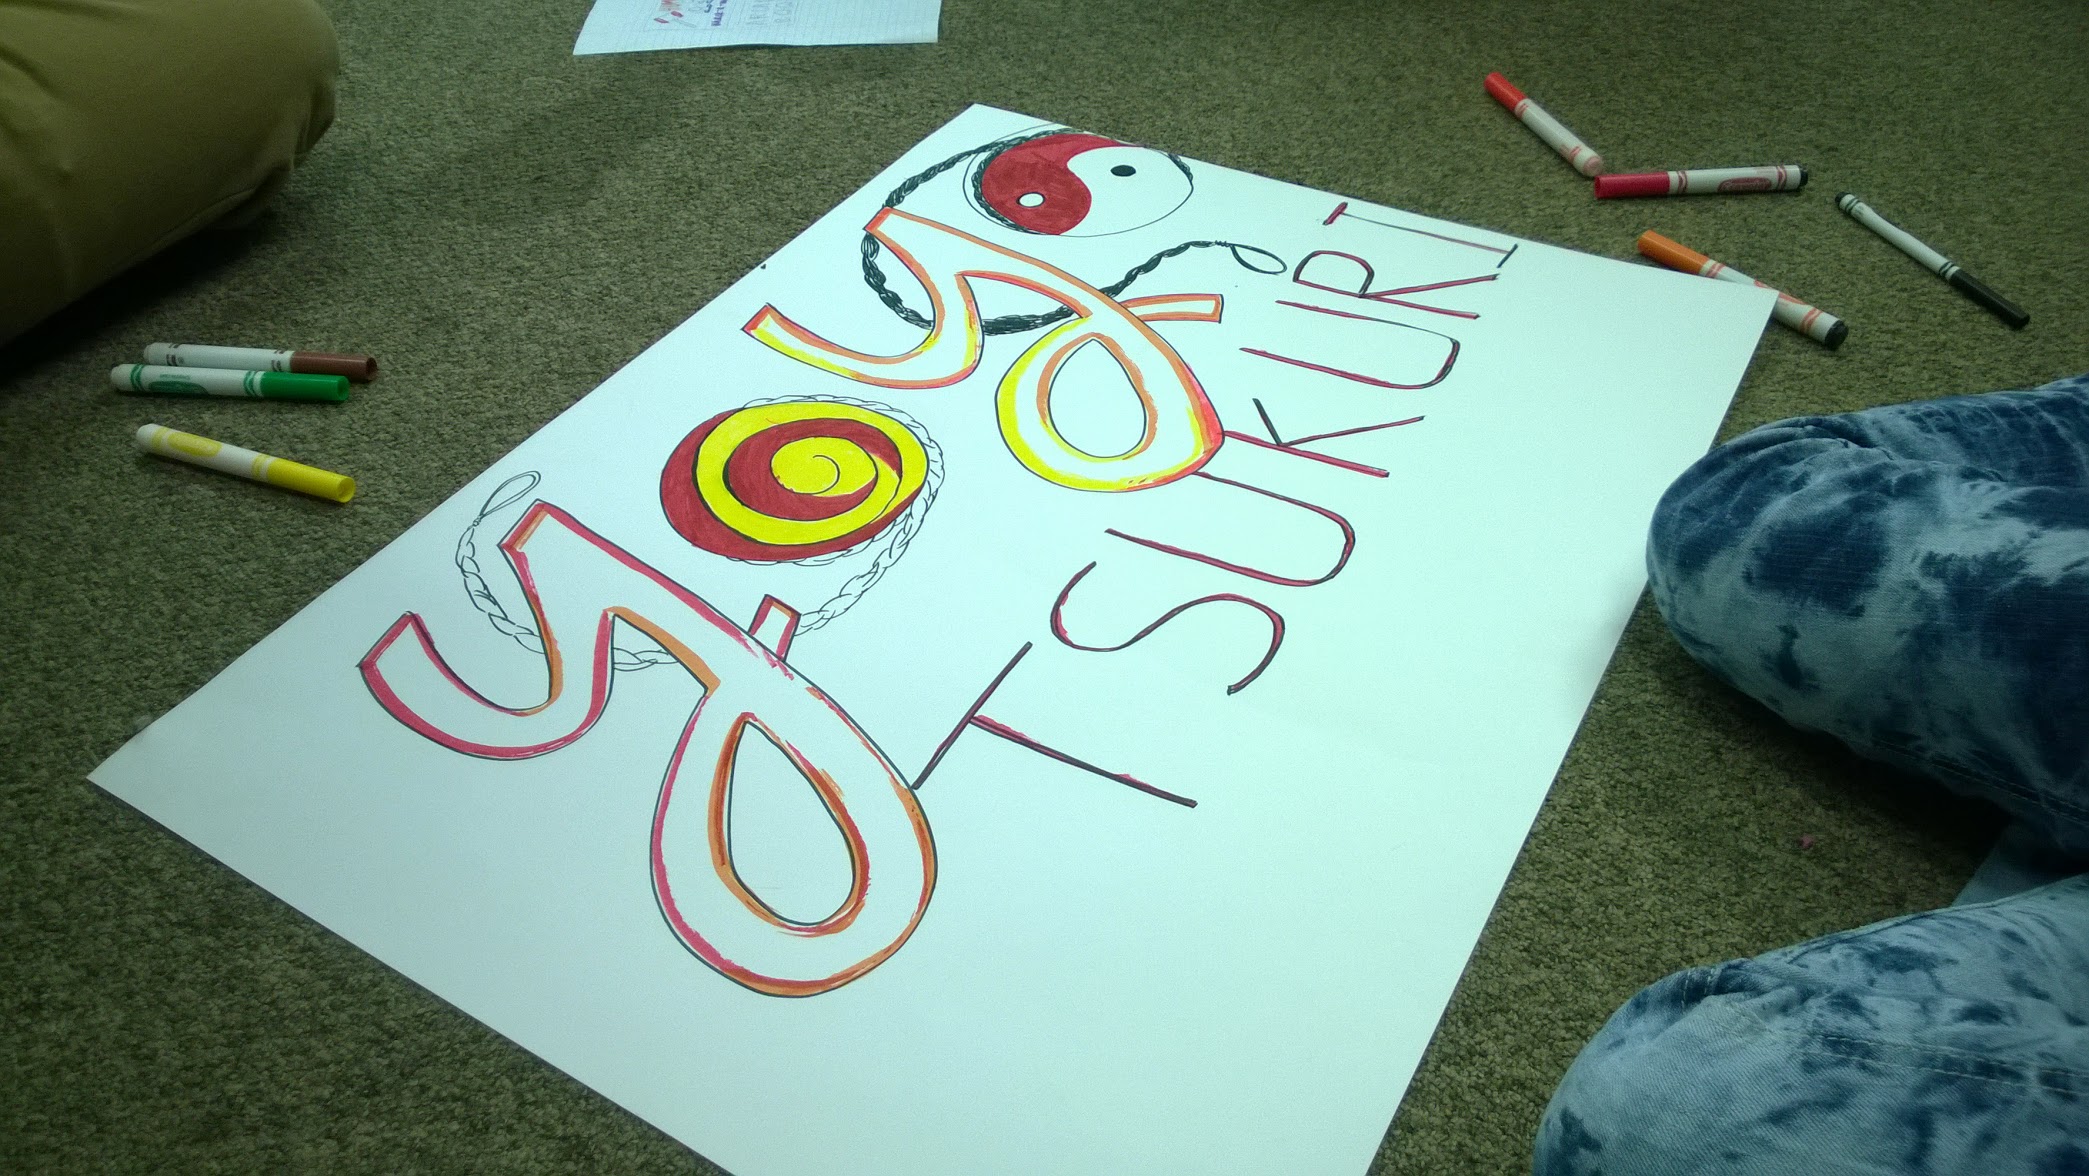 yoyo
TSUKURI